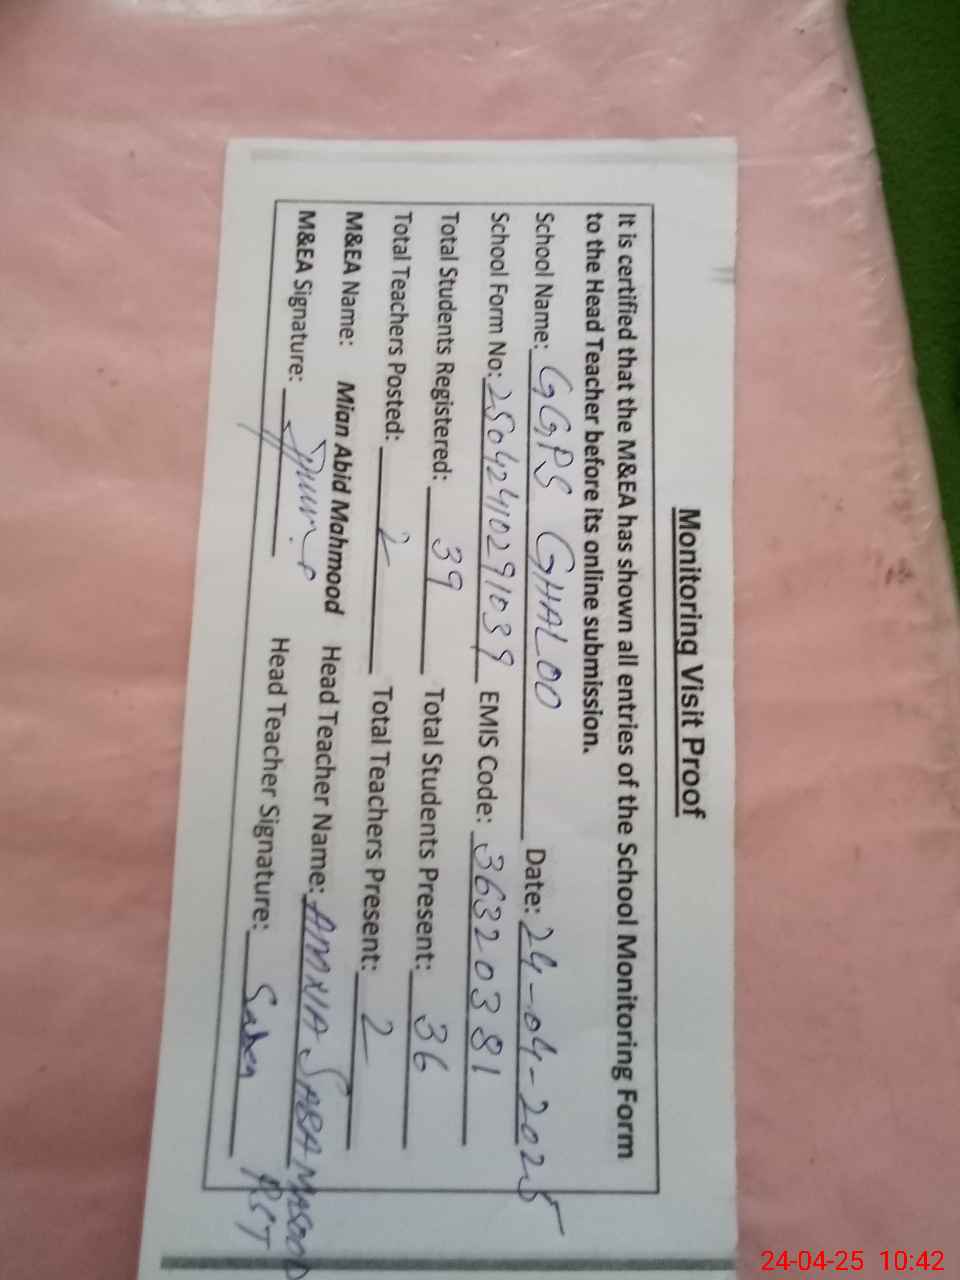 Monitoring Visit Proof
It is certified that the M&EA has shown all entries of the School Monitoring Form
to the Head Teacher before its online submission.
School Name: GGPS GHALOO Date: 24-04-2025
School Form No: 25042410291039 EMIS Code: 36320381
Total Students Registered: 39 Total Students Present: 36
Total Teachers Posted: 2 Total Teachers Present: 2
M&EA Name: Mian Abid Mahmood Head Teacher Name: SABA MASOOD
M&EA Signature: Head Teacher Signature:
24-04-25 10:42